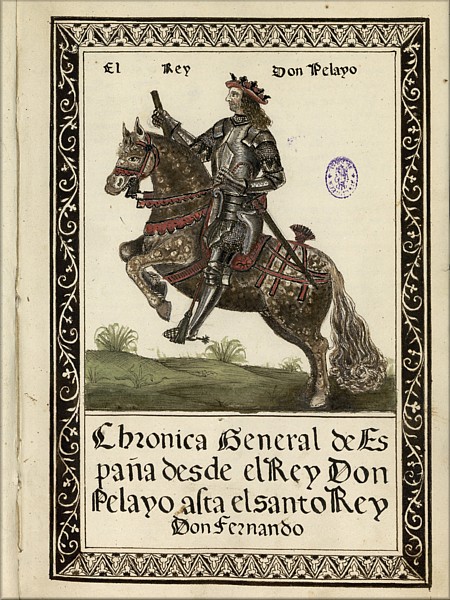 El Rey Don Pelayo
Chronica General de Es
paña desde el Rey Don
Pelayo asta el santo Rey
Don Fernando